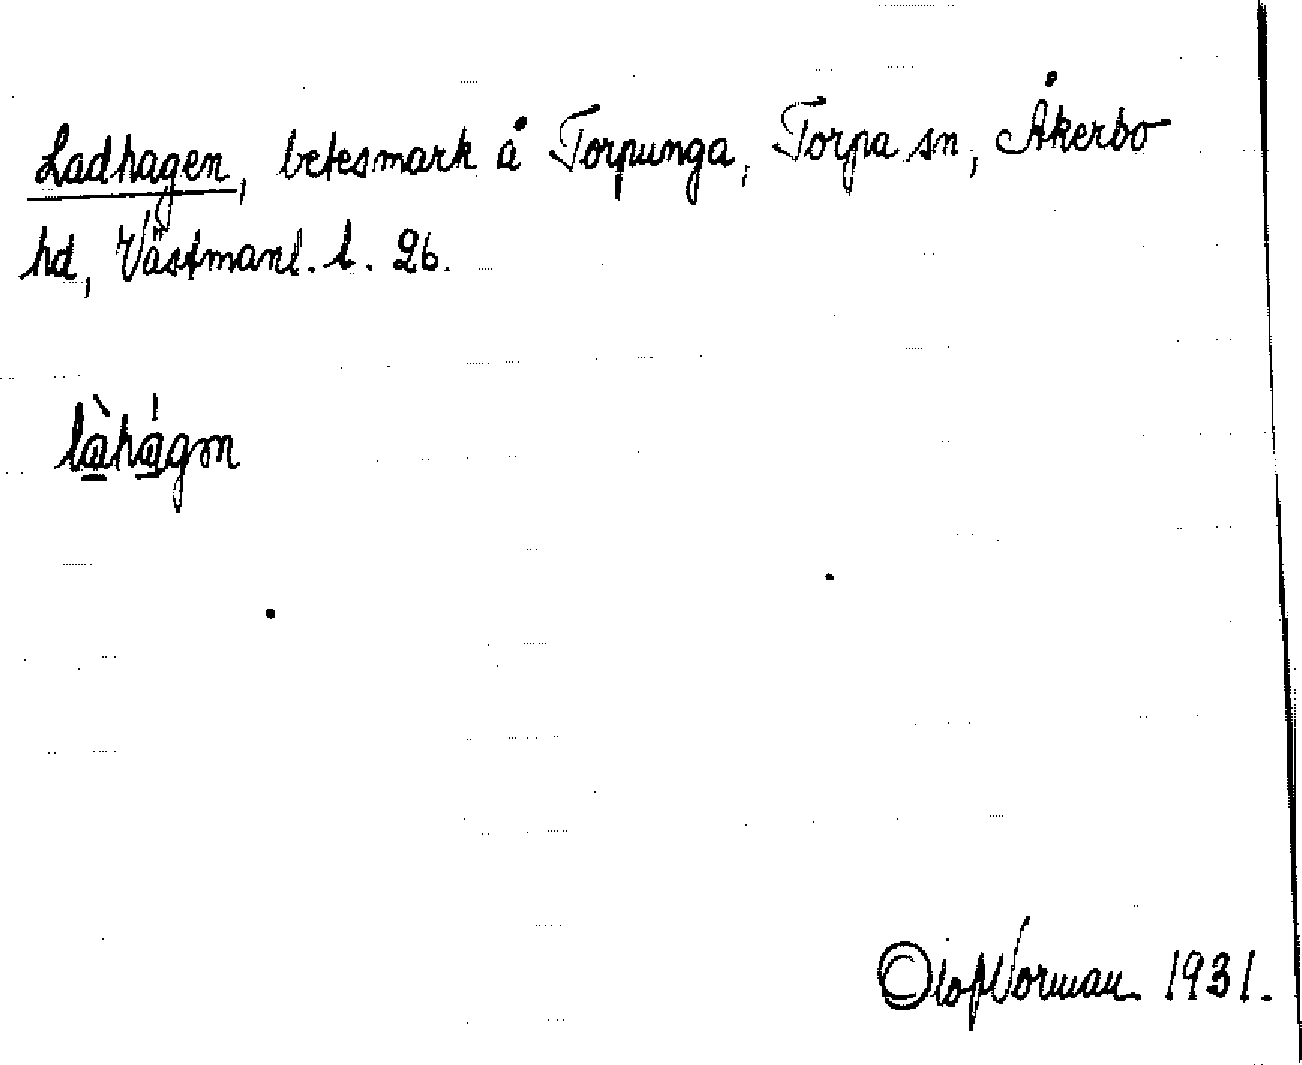 Ladhagen, betesmark å Torpunga, Torpa sn, Åkerbo
hd, Västmanl. l. 26.
làhágm
Olof Norman 1931.